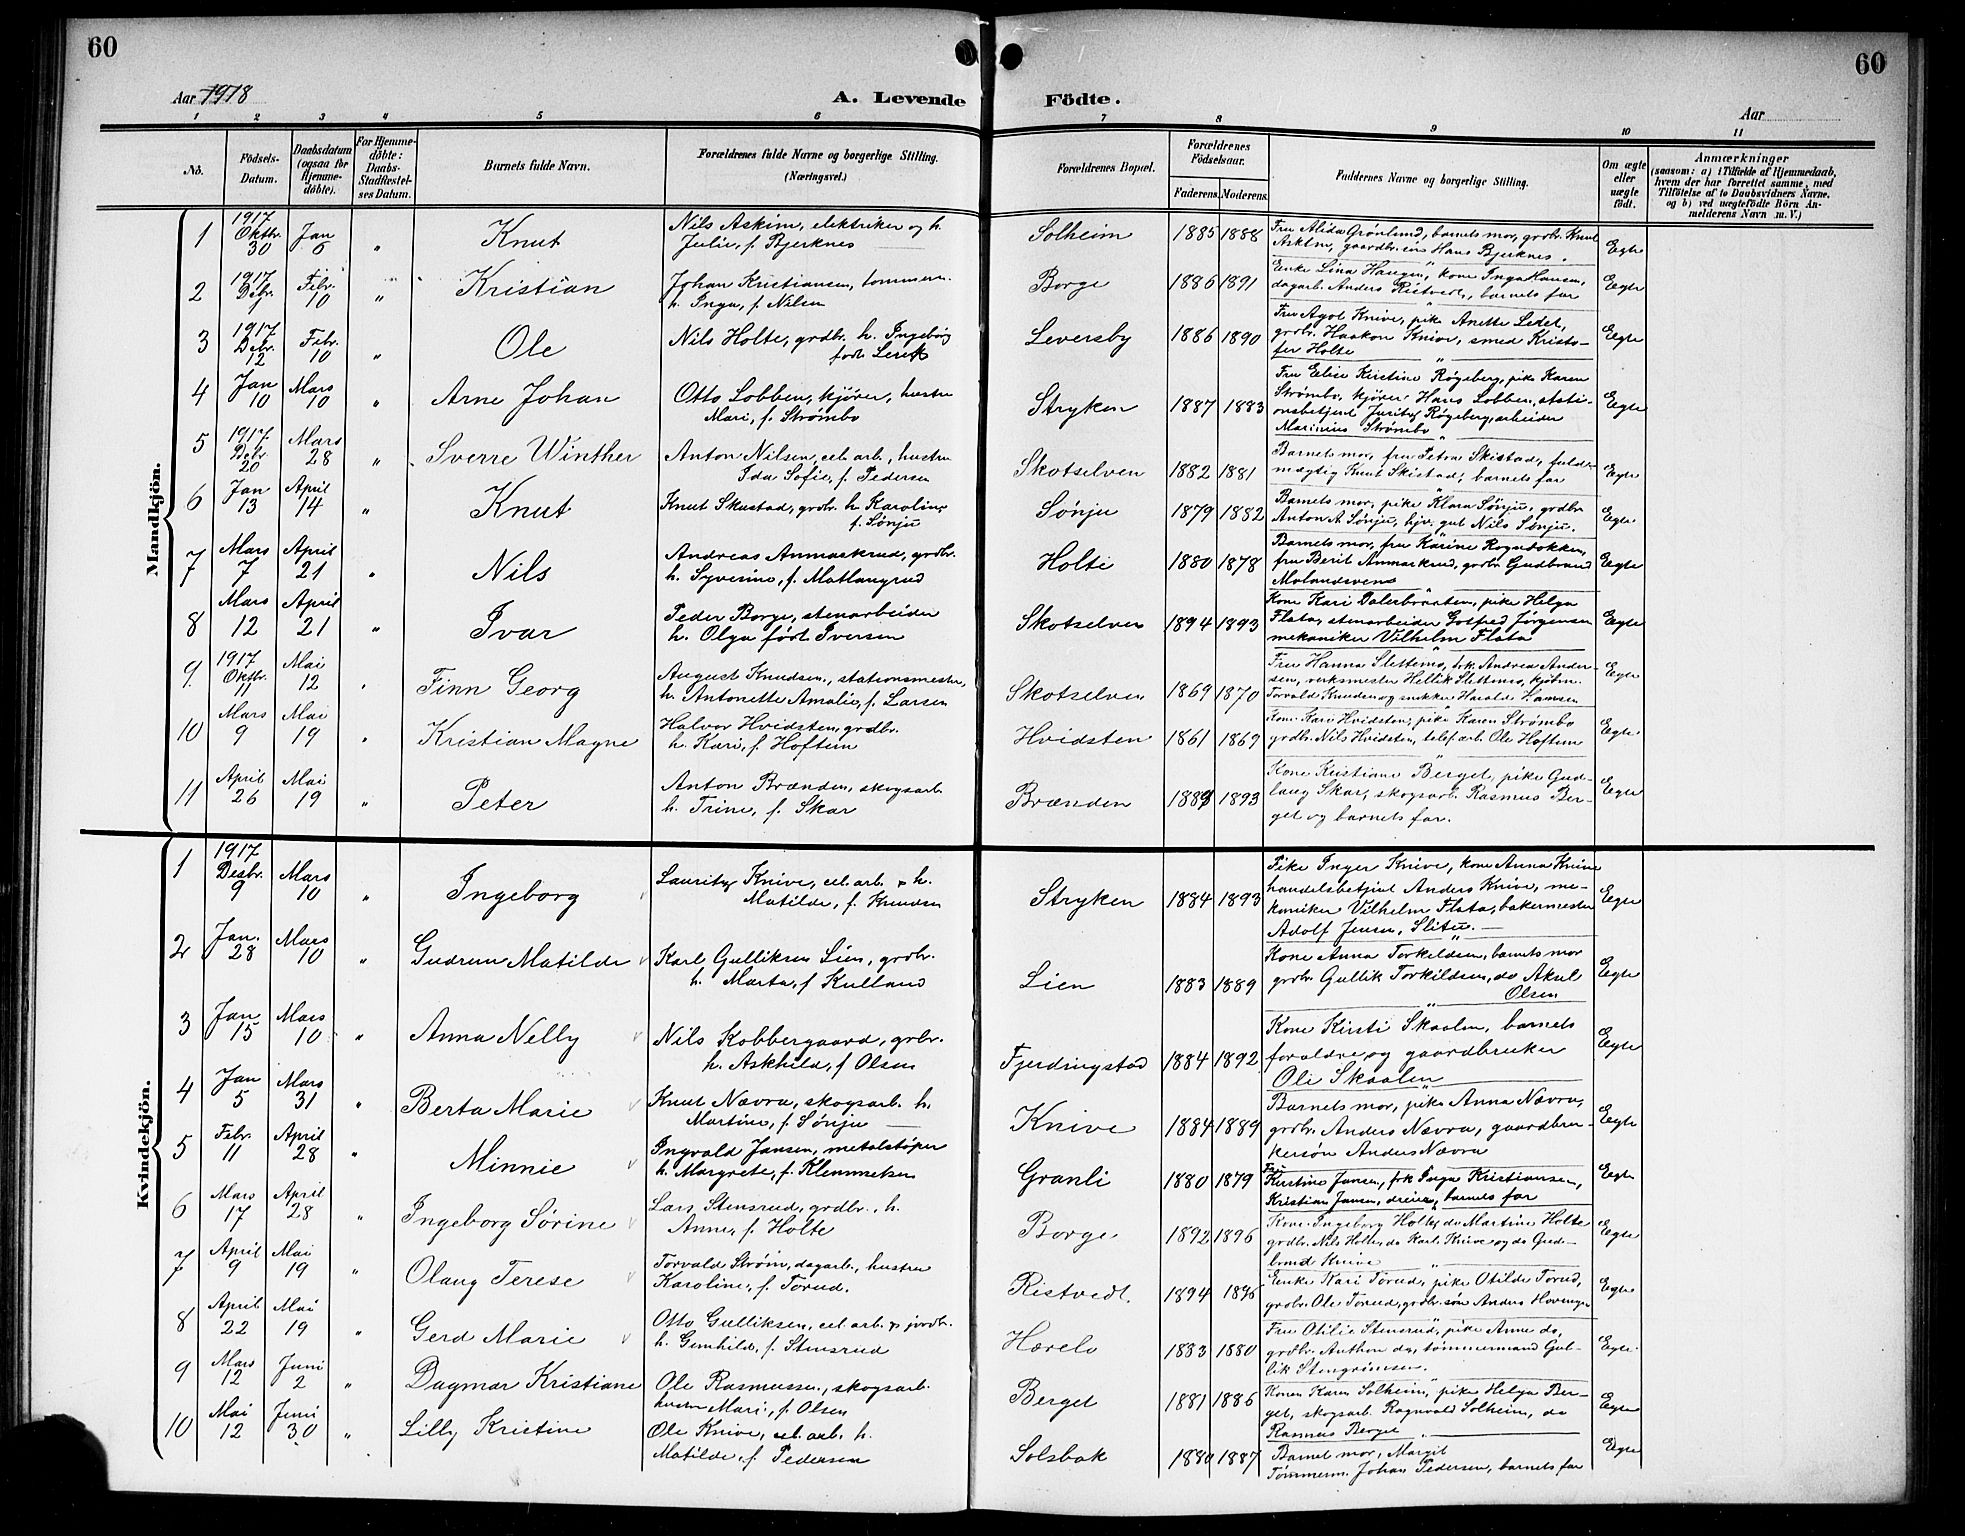 60
60
Aar 1918
A. Levende Födte.
Aar
1 2 3 4 5 6 7 8 9 10 11
No.
Födsels-Datum.
Daabsdatum (ogsaa for Hjemme-döbte).
For Hjemme-döbte: Daabs-Stadfæstel-ses Datum.
Barnets fulde Navn.
Forældrenes fulde Navne og borgerlige Stilling. (Næringsvei.)
Forældrenes Bopæl.
Forældrenes Födselsaar.
Faderens. Moderens.
Faddernes Navne og borgerlige Stilling.
Om ægte eller uægte födt.
Anmærkninger
(saasom: a) i Tilfælde af Hjemmedaab,
hvem der har forrettet samme, med
Tilföielse af to Daabsvidners Navne,
og b) ved uegtefödte Börn An-
melderens Navn m. V.)
Mandkjön.
1 1917 Oktbr. 30 Jan 6 " Knut
Nils Askim, elektriker og h.
Julie, f. Bjerknes
Solheim 1885 1888
Fru Alida Grønlund, barnets mor, grdbr. Knut
Askim, gaardbr. Hans Bjerknes
Egte
2 1917 Debr. Febr. 10 " Kristian
Johan Kristiansen, tømmerm.
h. Inga, f. Nilsen
Borge 1886 1891
Enke Lina Haugen, kone Inga Hansen,
dagarb. Anders Ristvedt, barnets far
Egte
3 1917 Debr. 12 Febr. 10 " Ole
Nils Holte, grdbr. h. Ingeborg
født
Leversby 1886 1890
Fru Agot Knive, pike Anette
grdbr. Haakon Knive, smed Kristo-
fer Holte
Egte
4 Jan 10 Mars 10 " Arne Johan
Otto Lobben, kjører, hustru
Mari, f. Strømbo
Stryken 1887 1883
Fru Elise Kirstine Røgeberg, pike Karen
Strømbo, kjører Hans Lobben, stati-
onsbetjent Røgeberg, arbeider
Marinius Strømbo
Egte
5 1917 Debr. 20 Mars 28 " Sverre Winther
Anton Nilsen, cel. arb., hustru
Ida Sofie, f. Pedersen
Skotselven 1882 1881
Barnets mor, fru Petra Skistad, fuld-
mægtig Knut Skistad, barnets far
Egte
6 Jan 13 April 14 " Knut
Knut Skustad, grdbr. h. Karoline,
f. Sønju
Sønju 1879 1882
Barnets mor, pike Klara Sønju, grdbr.
Anton A Sønju, gut Nils Sønju.
Egte
7 Mars 7 April 21 " Nils
Andreas Anmarkrud, grdbr.
h. Syverine, f. Matlangrud
Holte 1880 1878
Barnets mor, fru Karine
fru Berit Anmarkrud, grdbr. Gudbrand
Egte
8 Mars 12 April 21 " Ivar
Peder Borge, stenarbeider
h. Olga født Iversen
Skotselven 1894 1893
Kone Kari Dalerbraaten, pike Helga
Flata, stenarbeider Gotfred Jørgensen
mekaniker Vilhelm Flata
Egte
9. 1917 Oktbr. 11 Mai 12 " Finn Georg
August Knudsen, stationsmester,
h. Antonette Amalie, f. Larsen
Skotselven 1869 1870
Fru Hanna Slettemo, frk. Andrea Ander-
sen, verksmester Hellik Slettemo, kjøbm.
Torvald Knudsen og snekker Harald Hansen
Egte
10 Mars 9 Mai 19 " Kristian Magne
Halvor Hvidsten, grdbr.
h. Kari, f. Hoftun
Hvidsten 1861 1869
Kone Kari Hvidsten, pike Karen Strømbo
grdbr. Nils Hvidsten, telef. arb. Ole Hoftun
Egte
11 April 26 Mai 19 " Peter
Anton Brænden, skogsarb.
h. Trine, f. Skar
Brænden 1889 1893
Kone Kristiane Berget, pike Gud-
laug Skar, skogsarb. Rasmus Ber-
get og barnets far.
Egte
Kvindekjön.
1 1917 Desbr. 9 Mars 10 " Ingeborg
Lauritz Knive, cel. arb. & h.
Matilde, f. Knudsen
Stryken 1884 1893
Pike Inger Knive, kone Anna Knive
handelsbetjent Anders Knive, me-
kaniker Vilhelm Flata, bakermester
Adolf Jensen,
Egte
2 Jan. 28 Mars 10 " Gudrun Matilde
Karl Gulliksen Lien, grdbr.
h. Marta, f Kulland
Lien 1883 1889
Kone Anna Torkildsen, barnets mor
grdbr. Gullik Torkildsen, do Aksel
Olsen
Egte
3 Jan. 15 Mars 10 " Anna Nelly
Nils Kobbergaard, grbr.
h. Askhild, f Olsen
Fjerdingstad 1884 1892
Kone Kirsti Skaalen, barnets
foraldre, og gaardbruker
Ole Skaalen
Egte
4 Jan 5 Mars 31 " Berta Marie
Knut Nævra, skogsarb. h.
Martine, f. Sønju
Knive 1884 1889
Barnets mor, pike Anna Nævra,
grdbr. Anders Nævra, gaardbru-
kersøn Anders Nævra
Egte
5 Febr. 11 April 28 " Minnie
Ingvald Jansen, metalstøper
h. Margrete, f. Klemmetsen
Granli 1880 1879
Fru Kirstine Jansen, frk Inga Kristiansen,
Kristian Jansen, dreier, barnets far
Egte
6 Mars 17 April 28 " Ingeborg Sørine
Lars Stensrud, grdbr., h.
Anne, f. Holte
Borge 1892 1896
Kone Ingeborg Holte, do Martine Holte
grdbr. Nils Holte, do Karl Knive og do Gud-
brand Knive
Egte
7 April 9 Mai 19 " Olaug Terese
Torvald Strøm, dagarb., hustru
Karoline, f. Torud.
Ristvedt. 1894 1896
Enke Kari Torud, pike Otilde Torud,
grdbr. Ole Torud, grdbr. søn Anders
Egte
8 April 22 Mai 19 " Gerd Marie
Otto Gulliksen, cel. arb. & jordbr.
h. Gunhild, f. Stensrud
Horelv 1883 1880
Fru Otilie Stensrud, pike Anne do,
grdbr. Anthon do, tømmermand Gul-
lik Stengrimsen.
Egte
9 Mars 12 Juni 2 " Dagmar Kristiane
Ole Rasmussen, skogsarb.
hustru Mari, f. Olsen
Berget 1881 1886
Konen Karen Solheim, pike Helga Ber-
get, skogsarb. Ragnvald Solheim, do
Rasmus Berget
Egte
10 Mai 12 Juni 30 " Lilly Kristine
Ole Knive, cel. arb. h.
Matilde, f. Pedersen
Solsbak 1880 1887
Barnet mor, Margit
Tømmerm. Johan Pedersen, barnets far
Egte